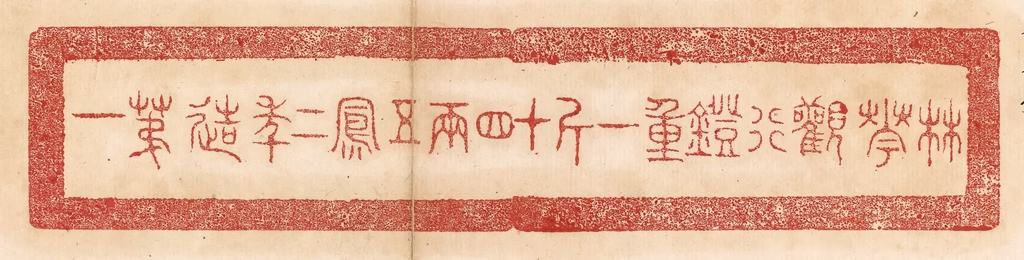 林華觀行鐙重一斤十四兩五鳳二年造第一